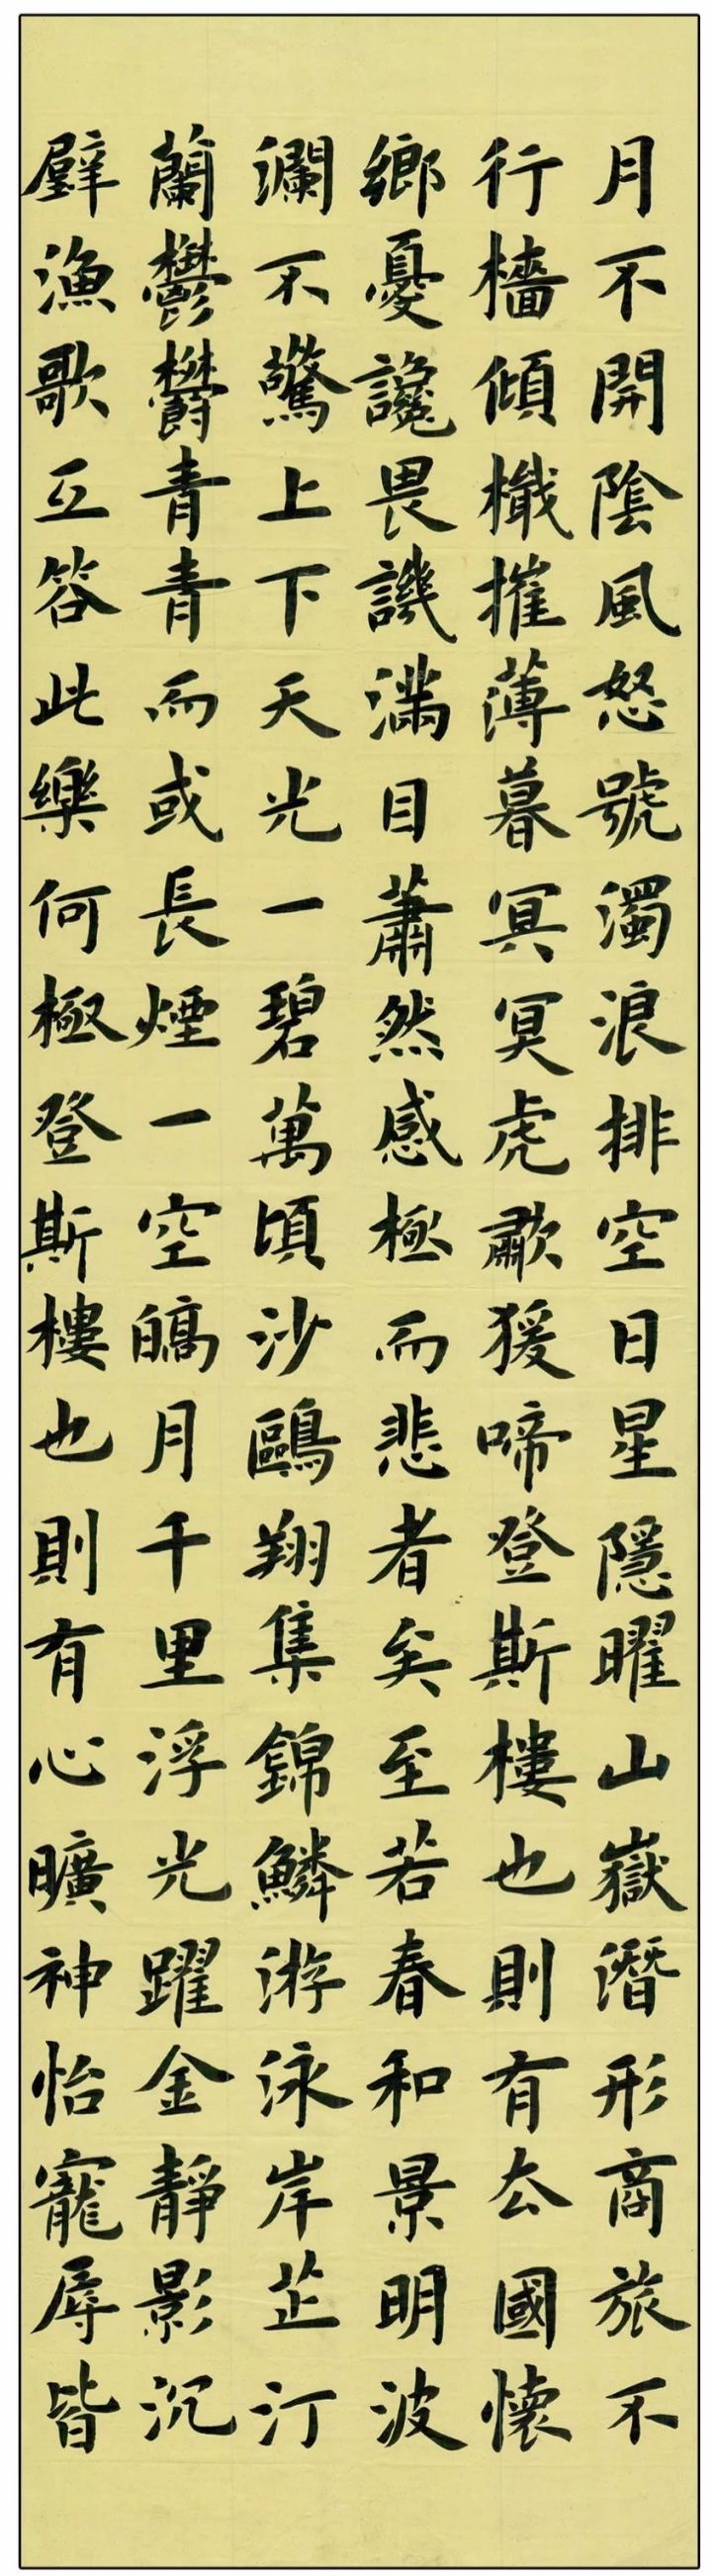 月不開陰風怒號濁浪排空日星隱曜山嶽潛形商旅不
行檣傾檝摧薄暮冥冥虎歗猨啼登斯樓也則有去國懷
鄉憂讒畏譏滿目蕭然感極而悲者矣至若春和景明波
瀾不驚上下天光一碧萬頃沙鷗翔集錦鱗游泳岸芷汀
蘭鬱鬱青青而或長煙一空皜月千里浮光躍金靜影沉
璧漁歌互答此樂何極登斯樓也則有心曠神怡寵辱皆